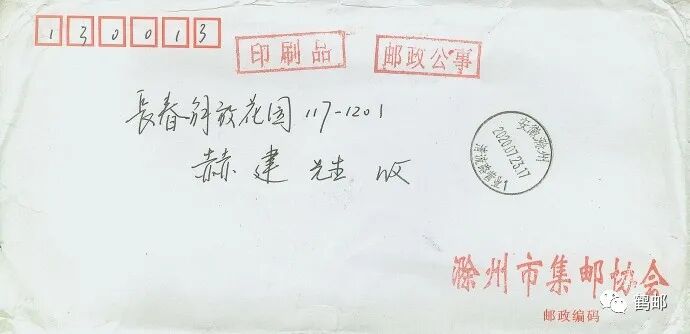 130013
印刷品
邮政公事
長春解放花园117-1201
赫建先生收
安徽滁州
2020.07.23.17
滁州市集邮协会
鹤邮
邮政编码